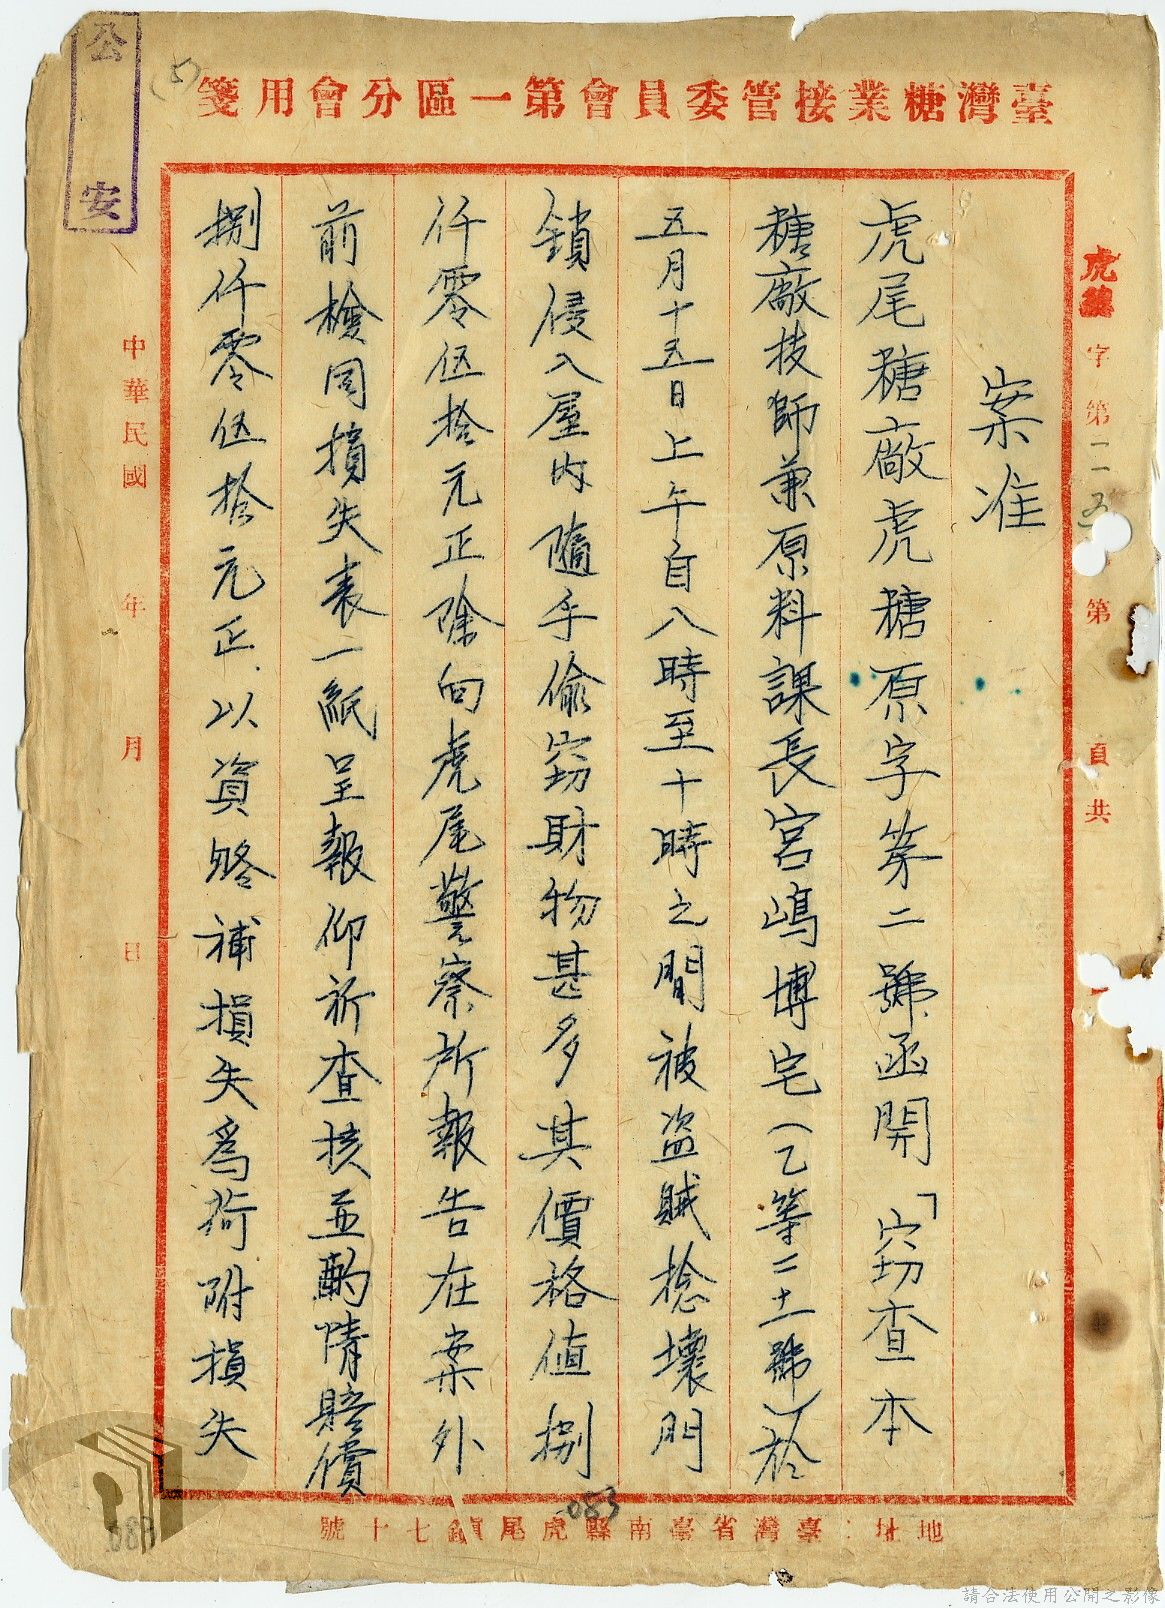 公安
(5)
臺灣糖業接管委員會第一區分會用箋
虎總字第一一五號第頁共
案准
虎尾糖廠虎糖原字第二號函開「窃查本
糖廠技師兼原料課長宮嶋博宅(乙等二十一號)於
五月十五日上午自八時至十時之間被盜賊捻壞門
鎖侵入屋內隨手偷窃財物甚多其價格值捌
仟零伍拾元正除向虎尾警察所報告在案外
前檢同損失表一紙呈報仰祈查核並酌情賠償
捌仟零伍拾元正以資賂補損失爲荷附損失
中華民國年月日
地址：臺灣省臺南縣虎尾鎮七十號
083
083
請合法使用公開之影像